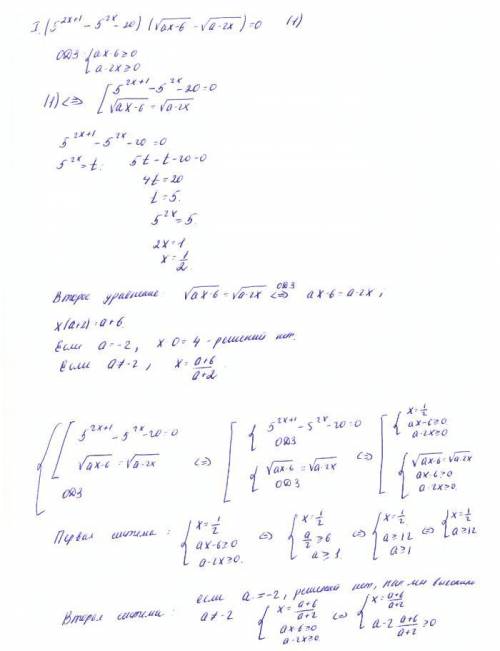 I. (5^{2x+1} - 5^{2x} - 20) (√(ax-6) - √(a-2x)) = 0 (1)
ОДЗ { ax-6 ≥ 0
a-2x ≥ 0
(1) <=> [ 5^{2x+1} - 5^{2x} - 20 = 0
√(ax-6) = √(a-2x)
5^{2x+1} - 5^{2x} - 20 = 0
5^{2x} = t: 5t - t - 20 = 0
4t = 20
t = 5.
5^{2x} = 5.
2x = 1
x = 1/2.
Второе уравнение √(ax-6) = √(a-2x) <=> ОДЗ ax-6 = a-2x;
x(a+2) = a+6.
Если a = -2, x·0 = 4 - решений нет.
Если a ≠ -2, x = (a+6)/(a+2).
{ [ 5^{2x+1} - 5^{2x} - 20 = 0 √(ax-6) = √(a-2x) ОДЗ <=> [ { 5^{2x+1} - 5^{2x} - 20 = 0 ОДЗ { √(ax-6) = √(a-2x) ОДЗ <=> [ { x = 1/2 ax-6 ≥ 0 a-2x ≥ 0 { √(ax-6) = √(a-2x) ax-6 ≥ 0 a-2x ≥ 0.
Первая система: { x = 1/2 ax-6 ≥ 0 a-2x ≥ 0. <=> { x = 1/2 a/2 ≥ 6 a ≥ 1. <=> { x = 1/2. a ≥ 12 a ≥ 1 <=> { x = 1/2 a ≥ 12
Вторая система: если a = -2, решений нет, как мы выяснили
a ≠ -2 { x = (a+6)/(a+2) ax-6 ≥ 0 a-2x ≥ 0 <=> { x = (a+6)/(a+2) a-2 (a+6)/(a+2) ≥ 0